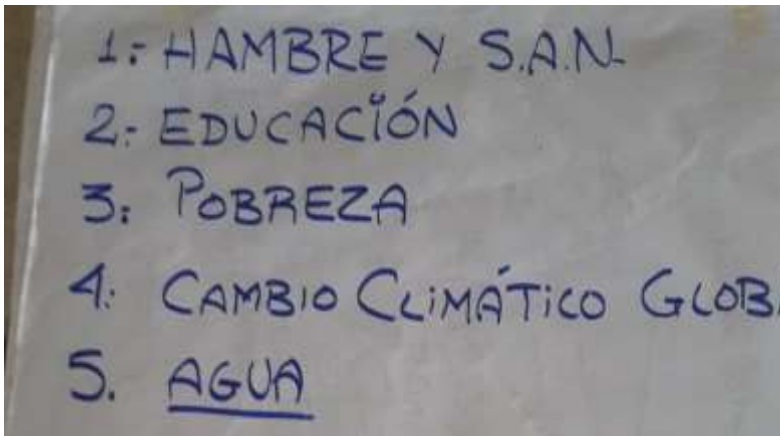 1.- HAMBRE Y S.A.N.
2.- EDUCACIÓN
3. POBREZA
4. CAMBIO CLIMÁTICO GLOB
5. AGUA